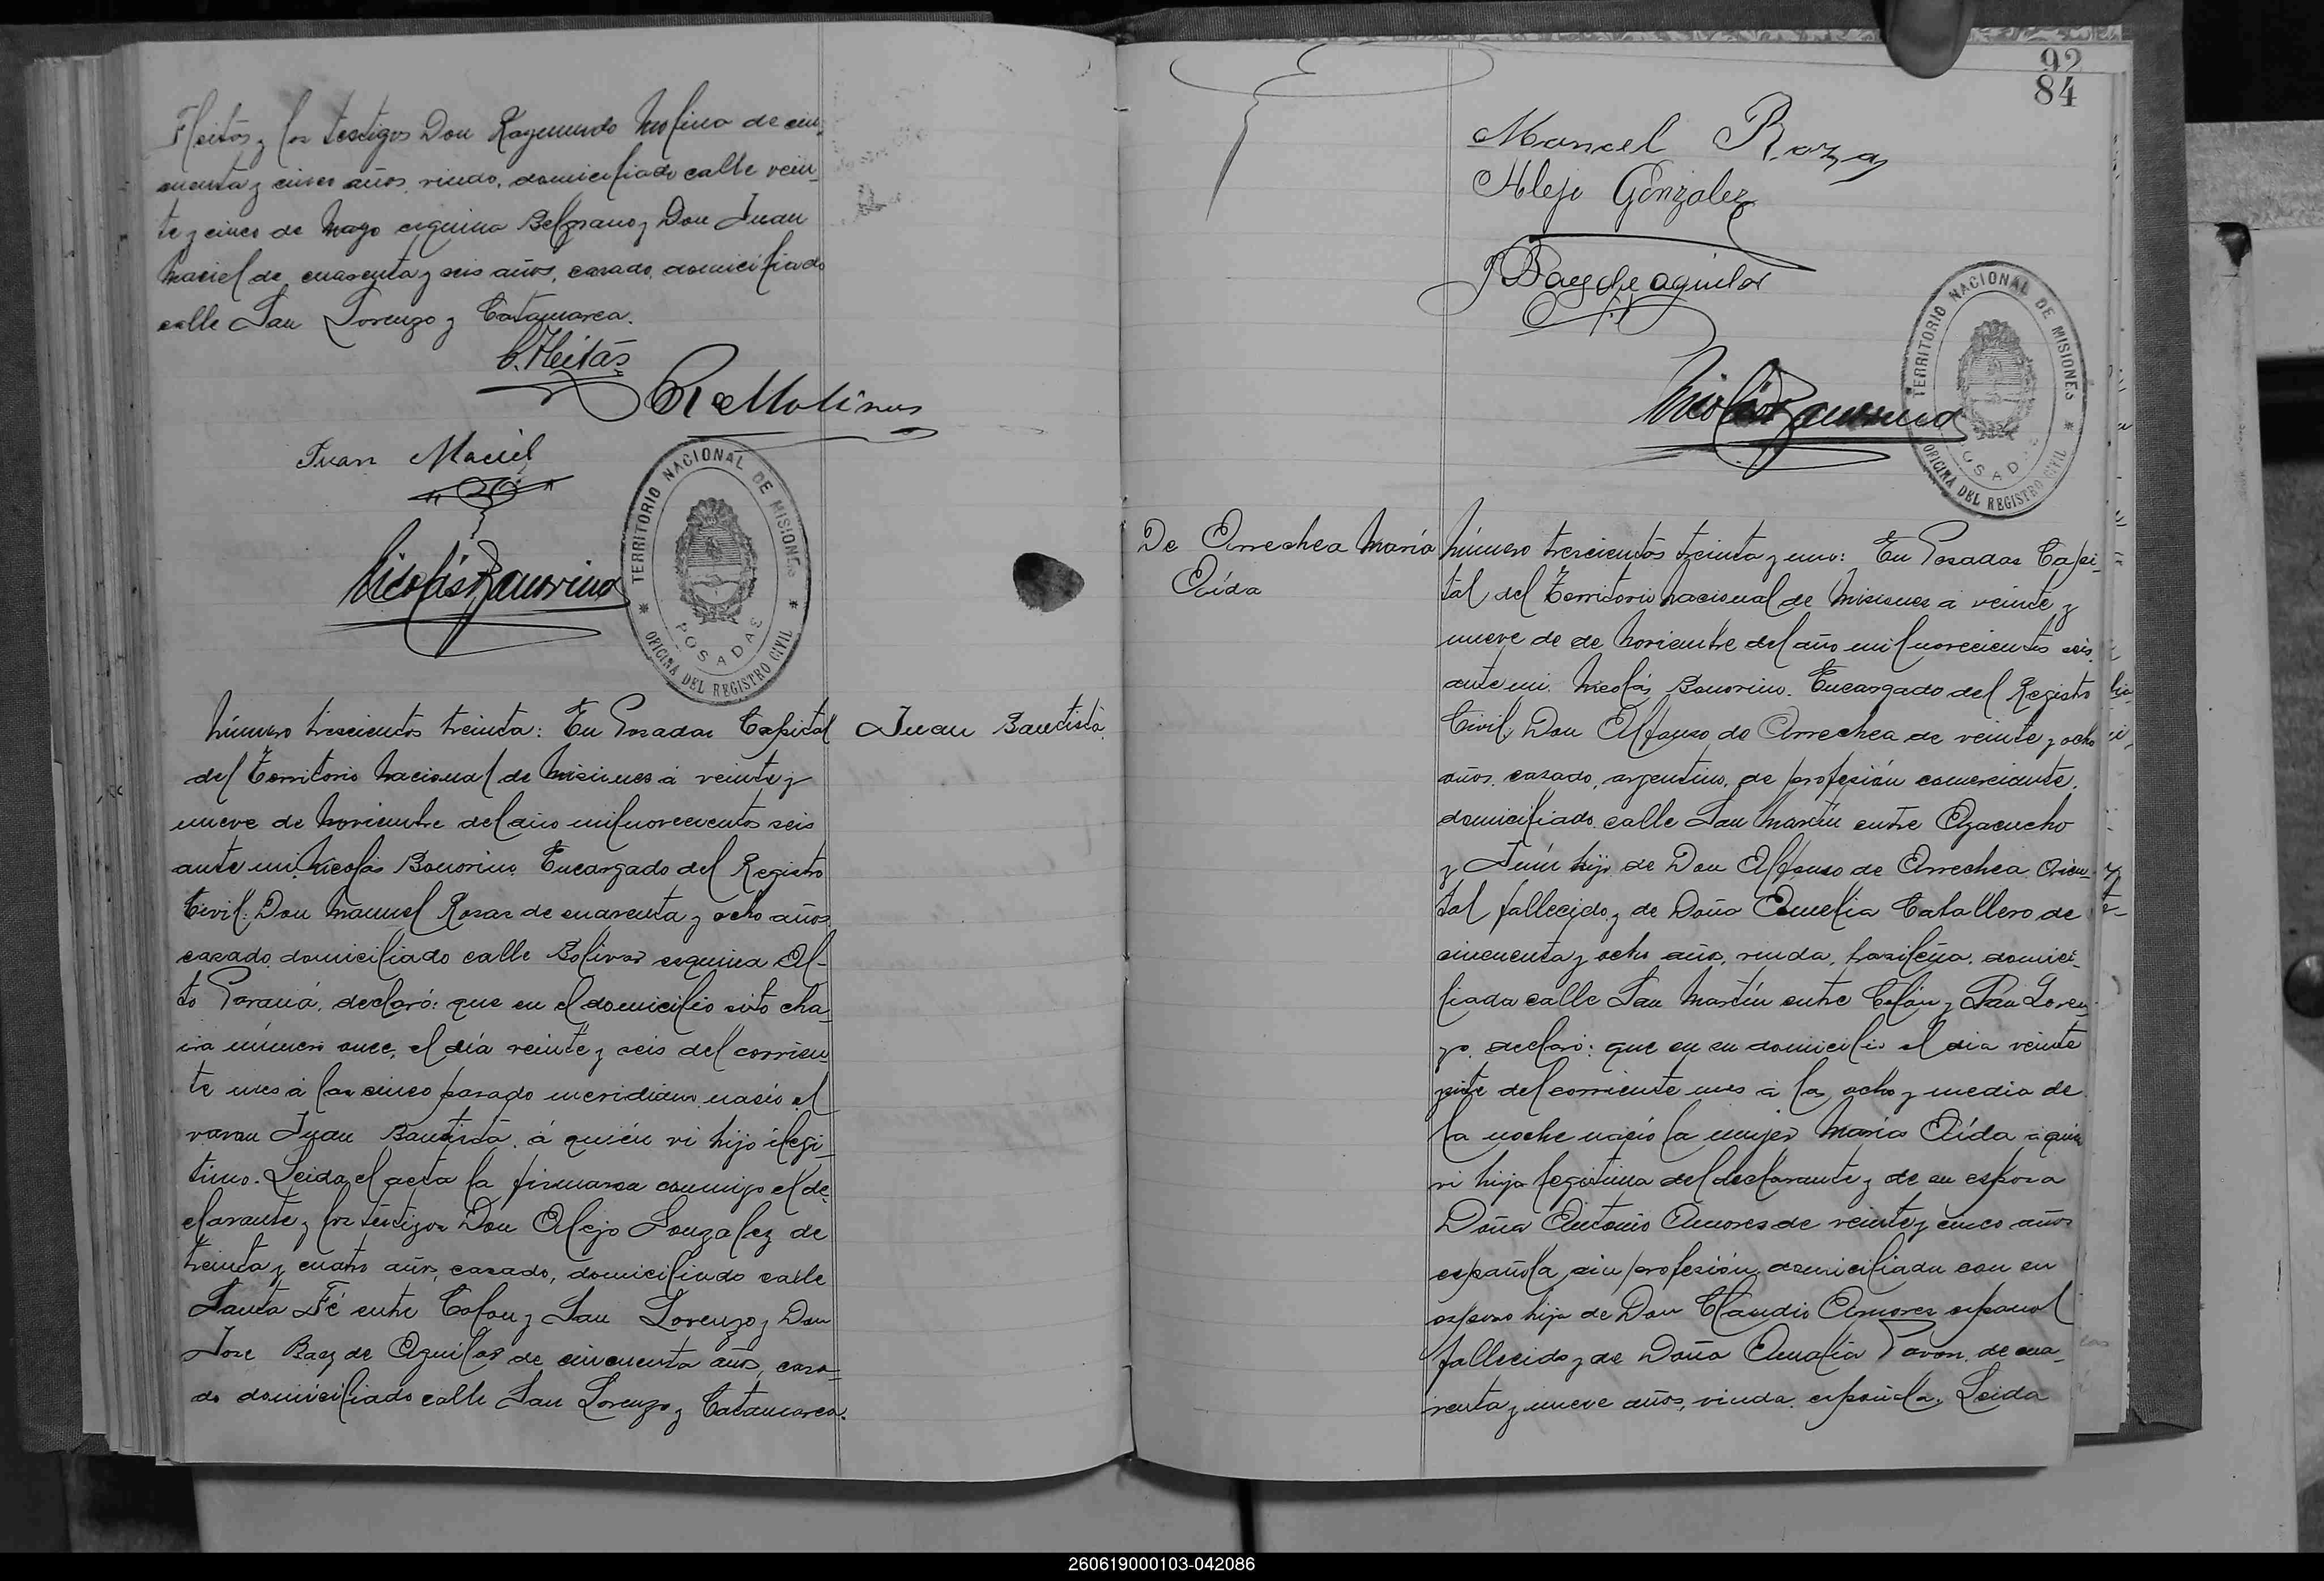 Fleitas y los testigos Don Raymundo Molina de cin-
cuenta y cinco años, viudo, domiciliado calle vein-
te y cinco de Mayo esquina Belgrano y Don Juan
Maciel de cuarenta y seis años, casado, domiciliado
calle San Lorenzo y Catamarca.
C. Fleitas
R Molinas
Juan Maciel
Nicolás Bonorino
TERRITORIO NACIONAL DE MISIONES
POSADAS
OFICINA DEL REGISTRO CIVIL
Número trescientos treinta: En Posadas Capital
Juan Bautista
del Territorio Nacional de Misiones á veinte y
nueve de Noviembre del año mil novecientos seis
ante mi, Nicolás Bonorino, Encargado del Registro
Civil: Don Manuel Rosas de cuarenta y ocho años
casado, domiciliado calle Bolivar esquina Al-
to Paraná, declaró: que en el domicilio sito cha-
cra número once, el día veinte y seis del corrien
te mes á las cinco pasado meridiano nació el
varon Juan Bautista, á quién vi hijo ilegi-
timo. Leida el acta la firmaron conmigo el de-
clarante y los testigos Don Alejo Gonzalez de
treinta y cuatro años, casado, domiciliado calle
Santa Fé entre Colon y San Lorenzo y Don
Jose Baez de Aguilar de cincuenta años, casa-
do domiciliado calle San Lorenzo y Catamarca.
92
84
Manuel Rozas
Alejo Gonzalez
J Baez de aguilar
Nicolás Bonorino
TERRITORIO NACIONAL DE MISIONES
POSADAS
OFICINA DEL REGISTRO CIVIL
De Arrechea María
Aída
Número trescientos treinta y uno: En Posadas Capi-
tal del Territorio Nacional de Misiones á veinte y
nueve de de Noviembre del año mil novecientos seis,
ante mi, Nicolás Bonorino, Encargado del Registro
Civil, Don Alfonso de Arrechea de veinte y ocho
años, casado, argentino, de profesión comerciante,
domiciliado calle San Martín entre Ayacucho
y Junín hijo de Don Alfonso de Arrechea, Orien-
tal fallecido y de Doña Amelia Caballero de
cincuenta y ocho años, viuda, brasileña, domici-
liada calle San Martín entre Colón y San Loren-
zo, declaró: que en su domicilio el dia veinte
siete del corriente mes á las ocho y media de
la noche nació la mujer María Aída á quien
vi hija legitima del declarante y de su esposa
Doña Antonio Amores de veinte y cinco años
española, sin profesión, domiciliada con su
esposo hija de Don Claudio Amores español
fallecido y de Doña Amalia Pavon, de cua-
renta y nueve años, viuda, española. Leida
260619000103-042086